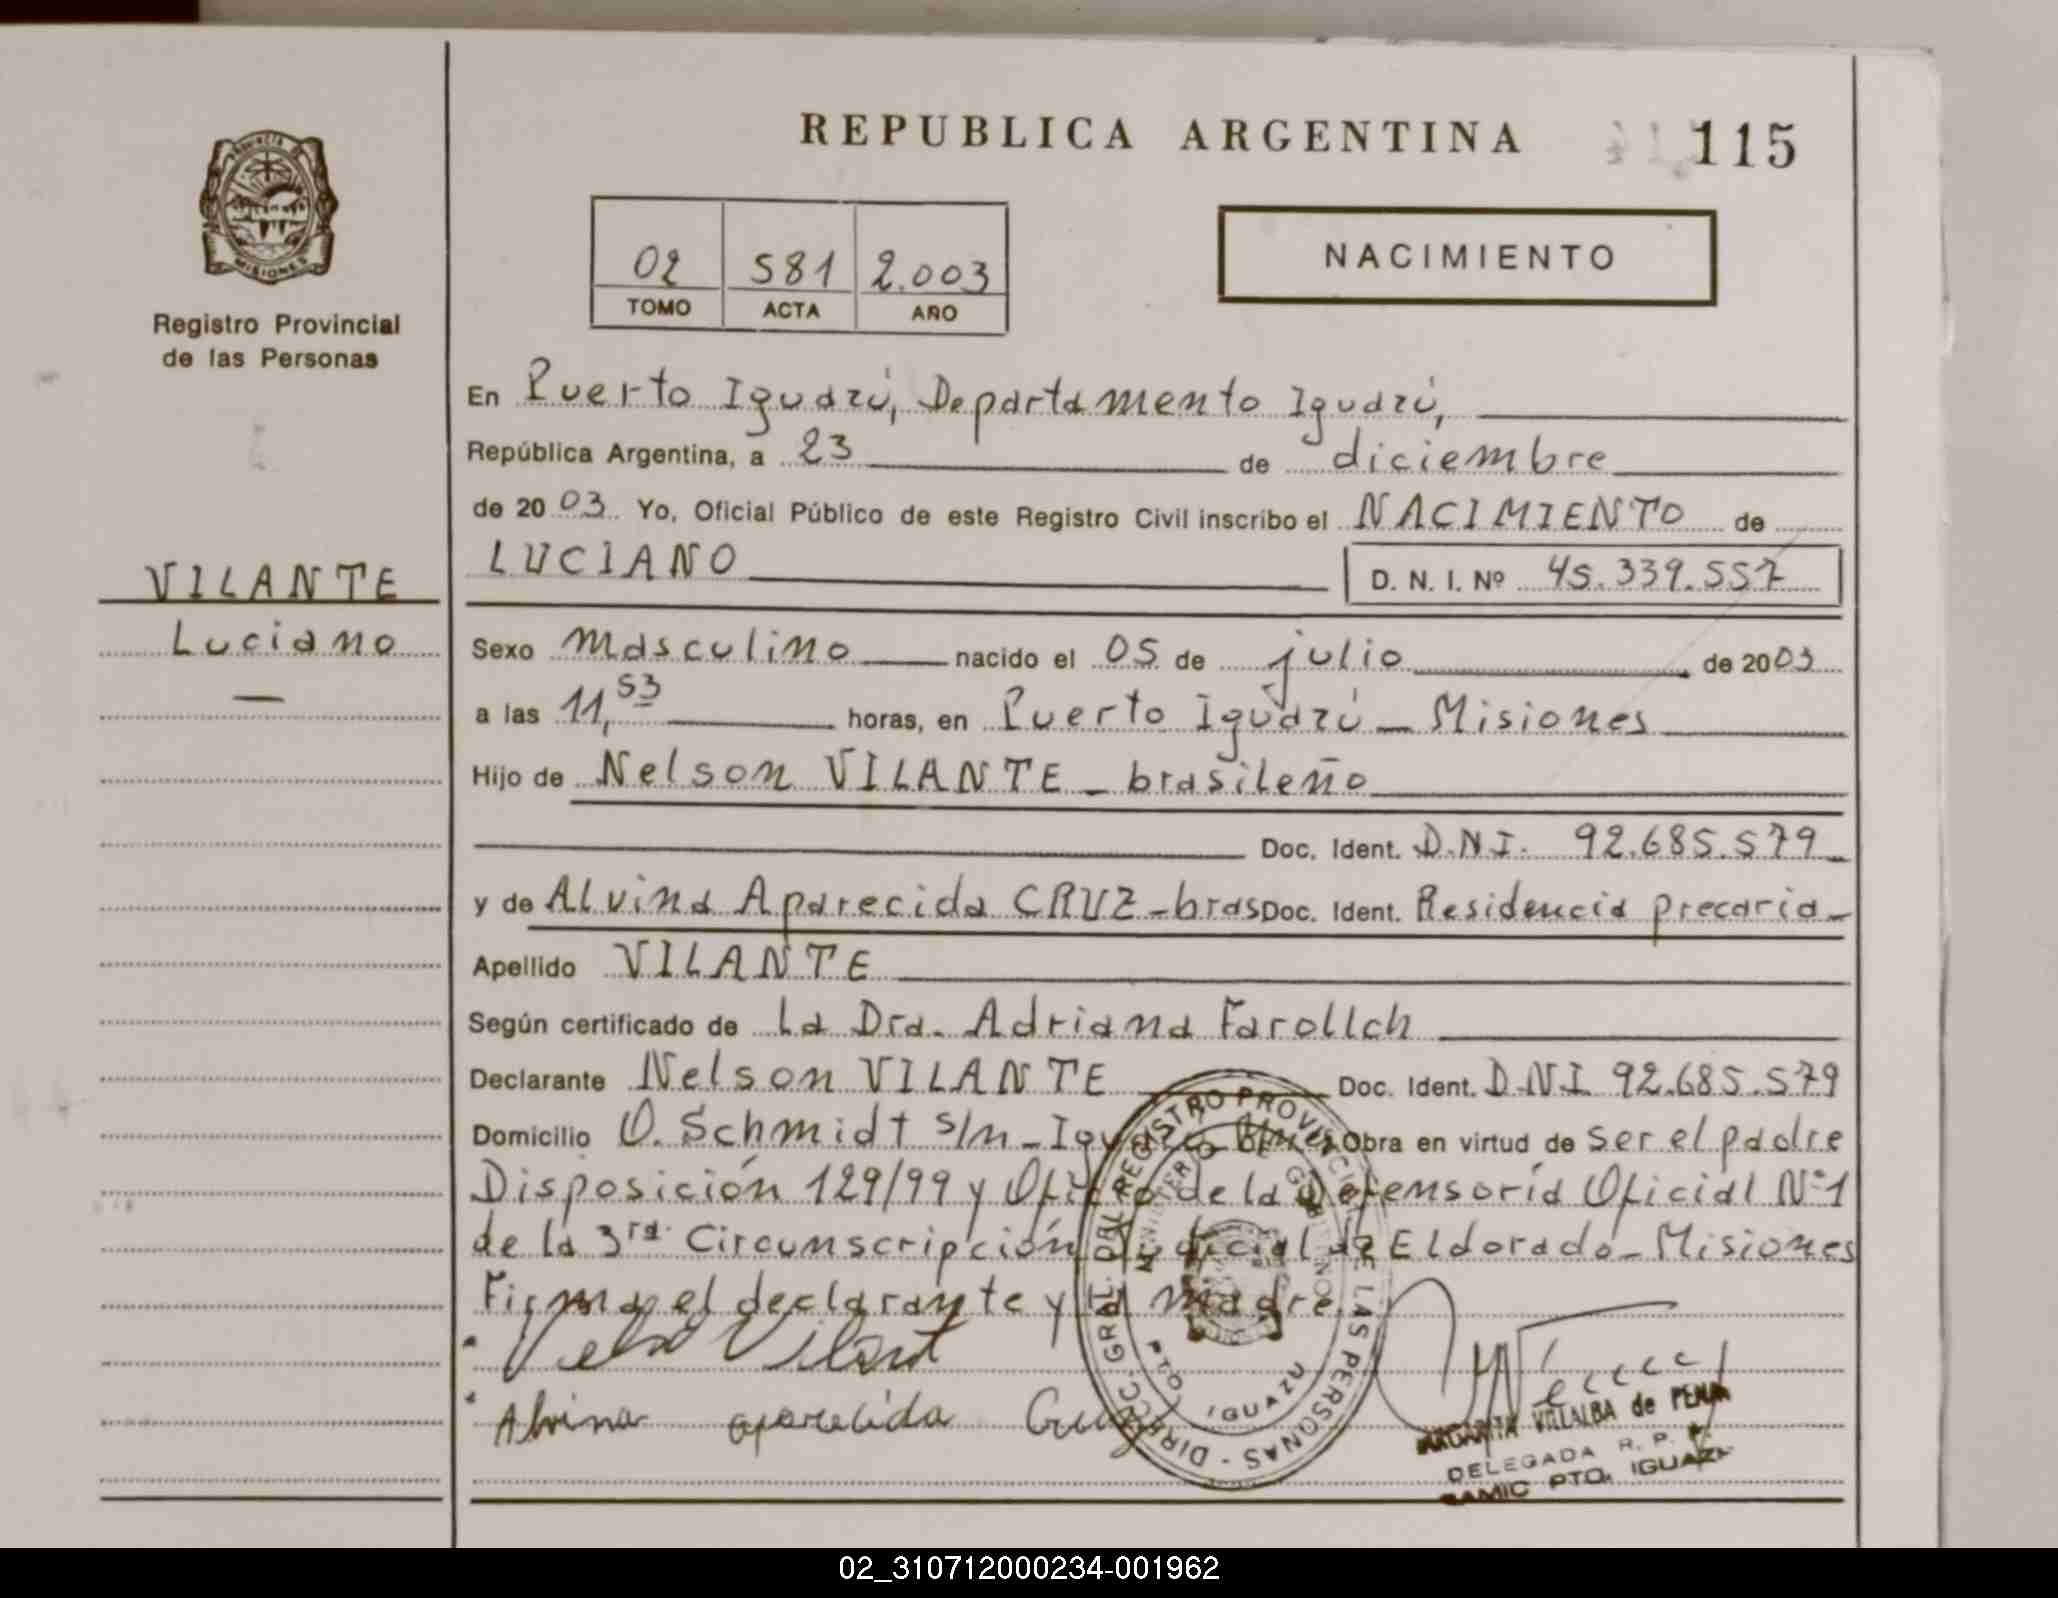 REPUBLICA ARGENTINA 115
PROVINCIA DE
MISIONES
Registro Provincial
de las Personas
02 581 2.003
TOMO ACTA AÑO
NACIMIENTO
En Puerto Iguazú, Departamento Iguazú,
República Argentina, a 23 de diciembre
de 2003. Yo, Oficial Público de este Registro Civil inscribo el NACIMIENTO de
LUCIANO D. N. I. Nº 45.339.557
VILANTE
Luciano
Sexo masculino nacido el 05 de julio de 2003
a las 11,53 horas, en Puerto Iguazú - Misiones
Hijo de Nelson VILANTE - brasileño
Doc. Ident. D.N.I. 92.685.579
y de Alvina Aparecida CRUZ - bras Doc. Ident. Residencia precaria
Apellido VILANTE
Según certificado de La Dra. Adriana Farollch
Declarante Nelson VILANTE Doc. Ident. D.N.I 92.685.579
Domicilio O. Schmidt s/n - Obra en virtud de ser el padre
Disposición 129/99 y Oficio de la Defensoría Oficial Nº1
de la 3ra. Circunscripción Judicial de Eldorado - Misiones
Firman el declarante y la madre.
Alvina aparecida Cruz
DIREC. GRAL. DEL REGISTRO PROVINCIAL DE LAS PERSONAS -
MINISTERIO DE GOBIERNO
PTO. IGUAZU
MARGARITA VILLALBA de PENA
DELEGADA R. P.
SAMIC PTO. IGUAZU
02_310712000234-001962